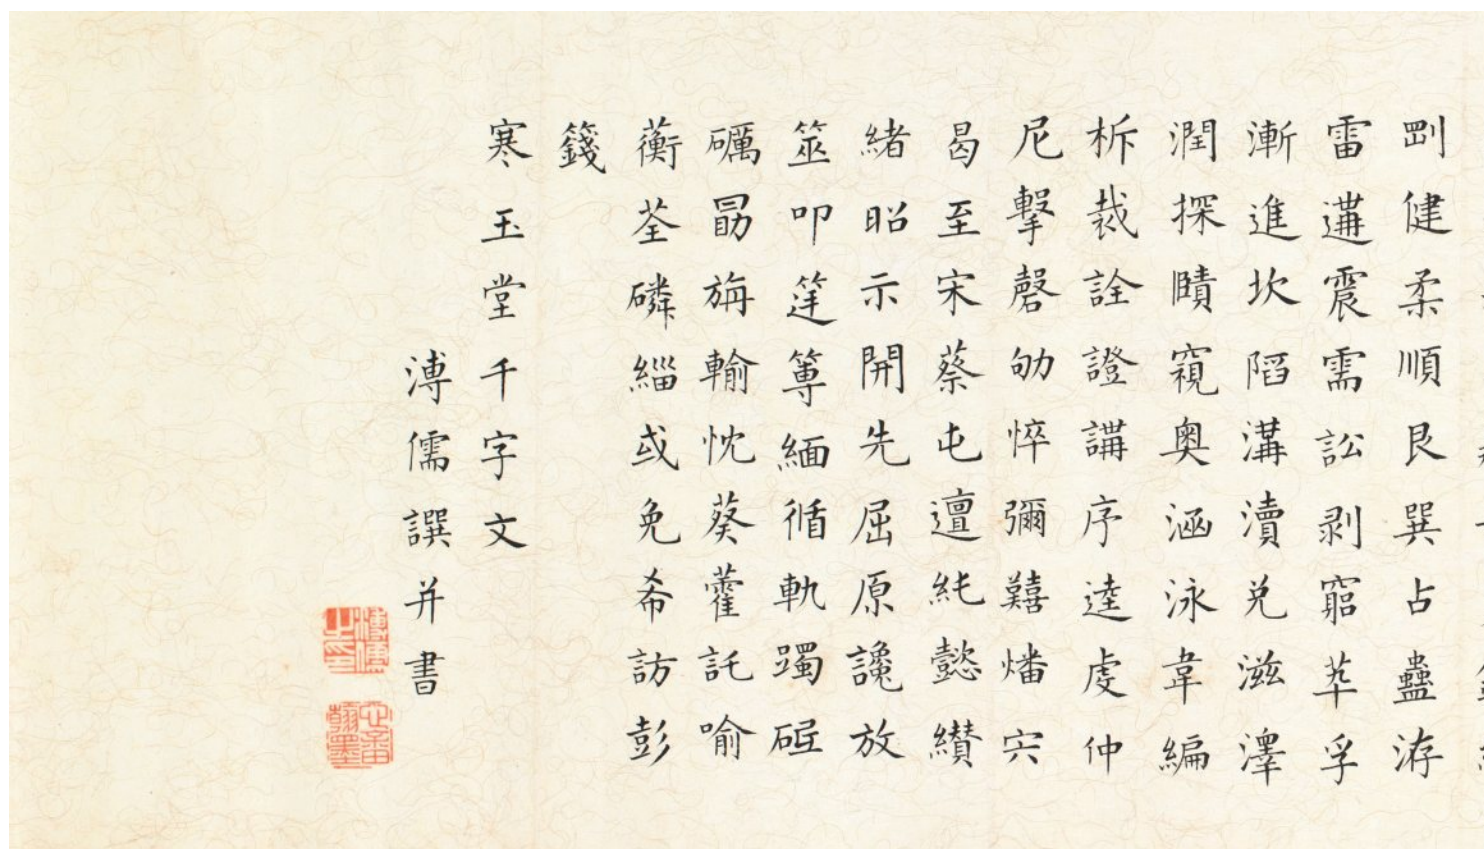 剛健柔順艮巽占蠱洊
雷遘震需訟剥窞革孚
漸進坎陷溝瀆兌滋澤
潤探賾窺奧涵泳韋編
析裁詮證講序逵虔仲
尼擊磬劬悴彌囏燔宍
曷至宋蔡屯邅純懿纘
緒昭示開先屈原讒放
筮叩筳篿緬循軌躅硜
礪勖旃輸忱葵藿託喻
蘅荃磷緇或免希訪彭
籛
寒玉堂千字文
溥儒撰并書
溥儒之印
心畬翰墨